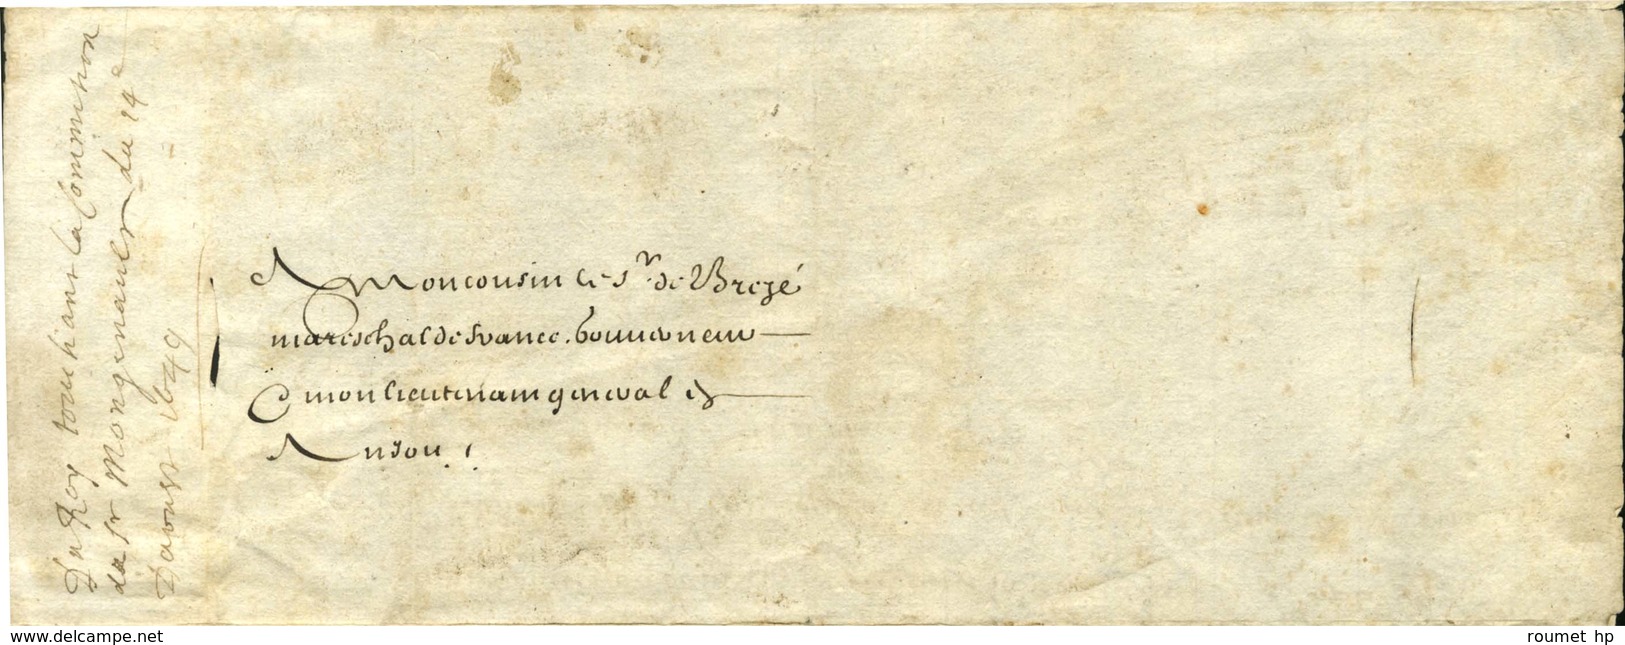 A Mon cousin le Sr de Brezé
mareschal de france, Gouverneur
& mon lieutenant general en
Anjou,
Du Roy touchant la Commission
du sr du 14e
Daoust 1649
www.delcampe.net
roumet hp